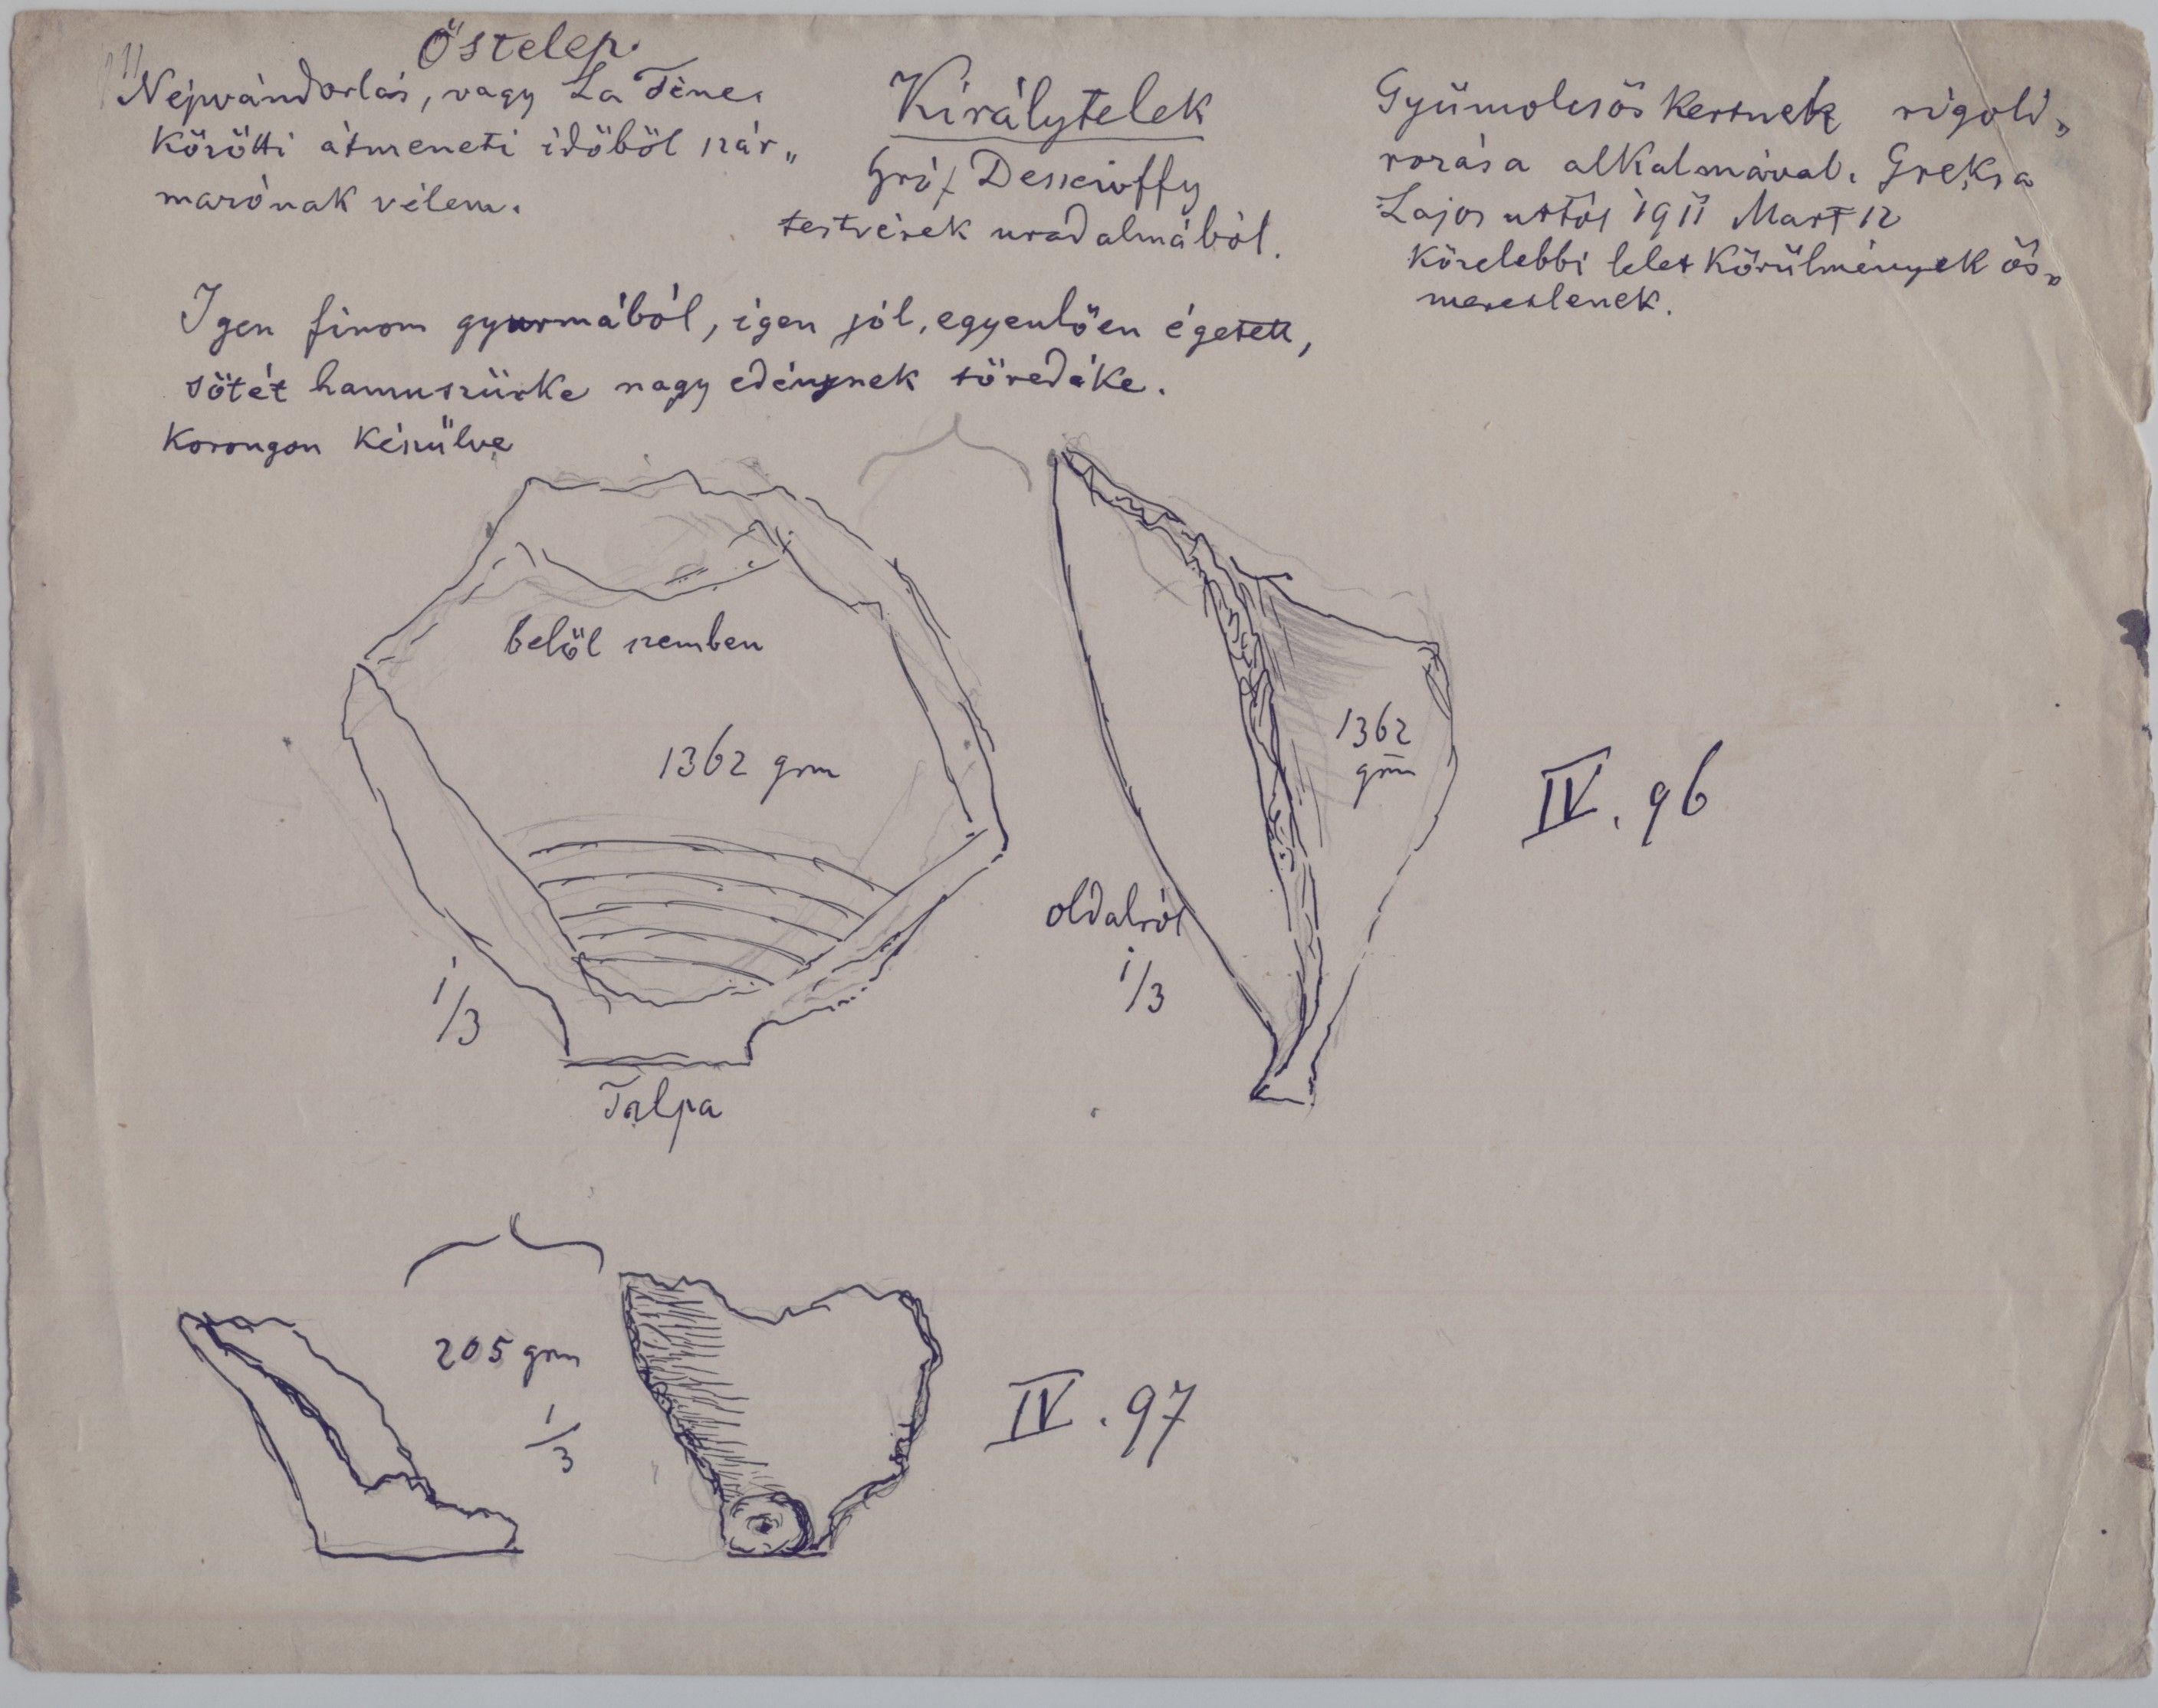 Őstelep.
Népvándorlás, vagy La Téne,
Körötti átmeneti időből szár„
mazónak vélem.
Királytelek
Gróf Dessewffy
testvérek uradalmából.
Gyümolcsös Kertnek rigolí„
rozása alkalmával. Greksa
Lajos úttól 1911 Mart 12
Közelebbi lelet Körülmények ös„
meretlenek.
Igen finom gyurmából, igen jól, egyenlöen égetett,
sötét hamuszürke nagy edénynek töredéke.
Korongon Készülve
belöl szemben
1362 grm
1362
grm
IV. 96
oldalról
1/3
1/3
Talpa
205 grm
1/3
IV. 97